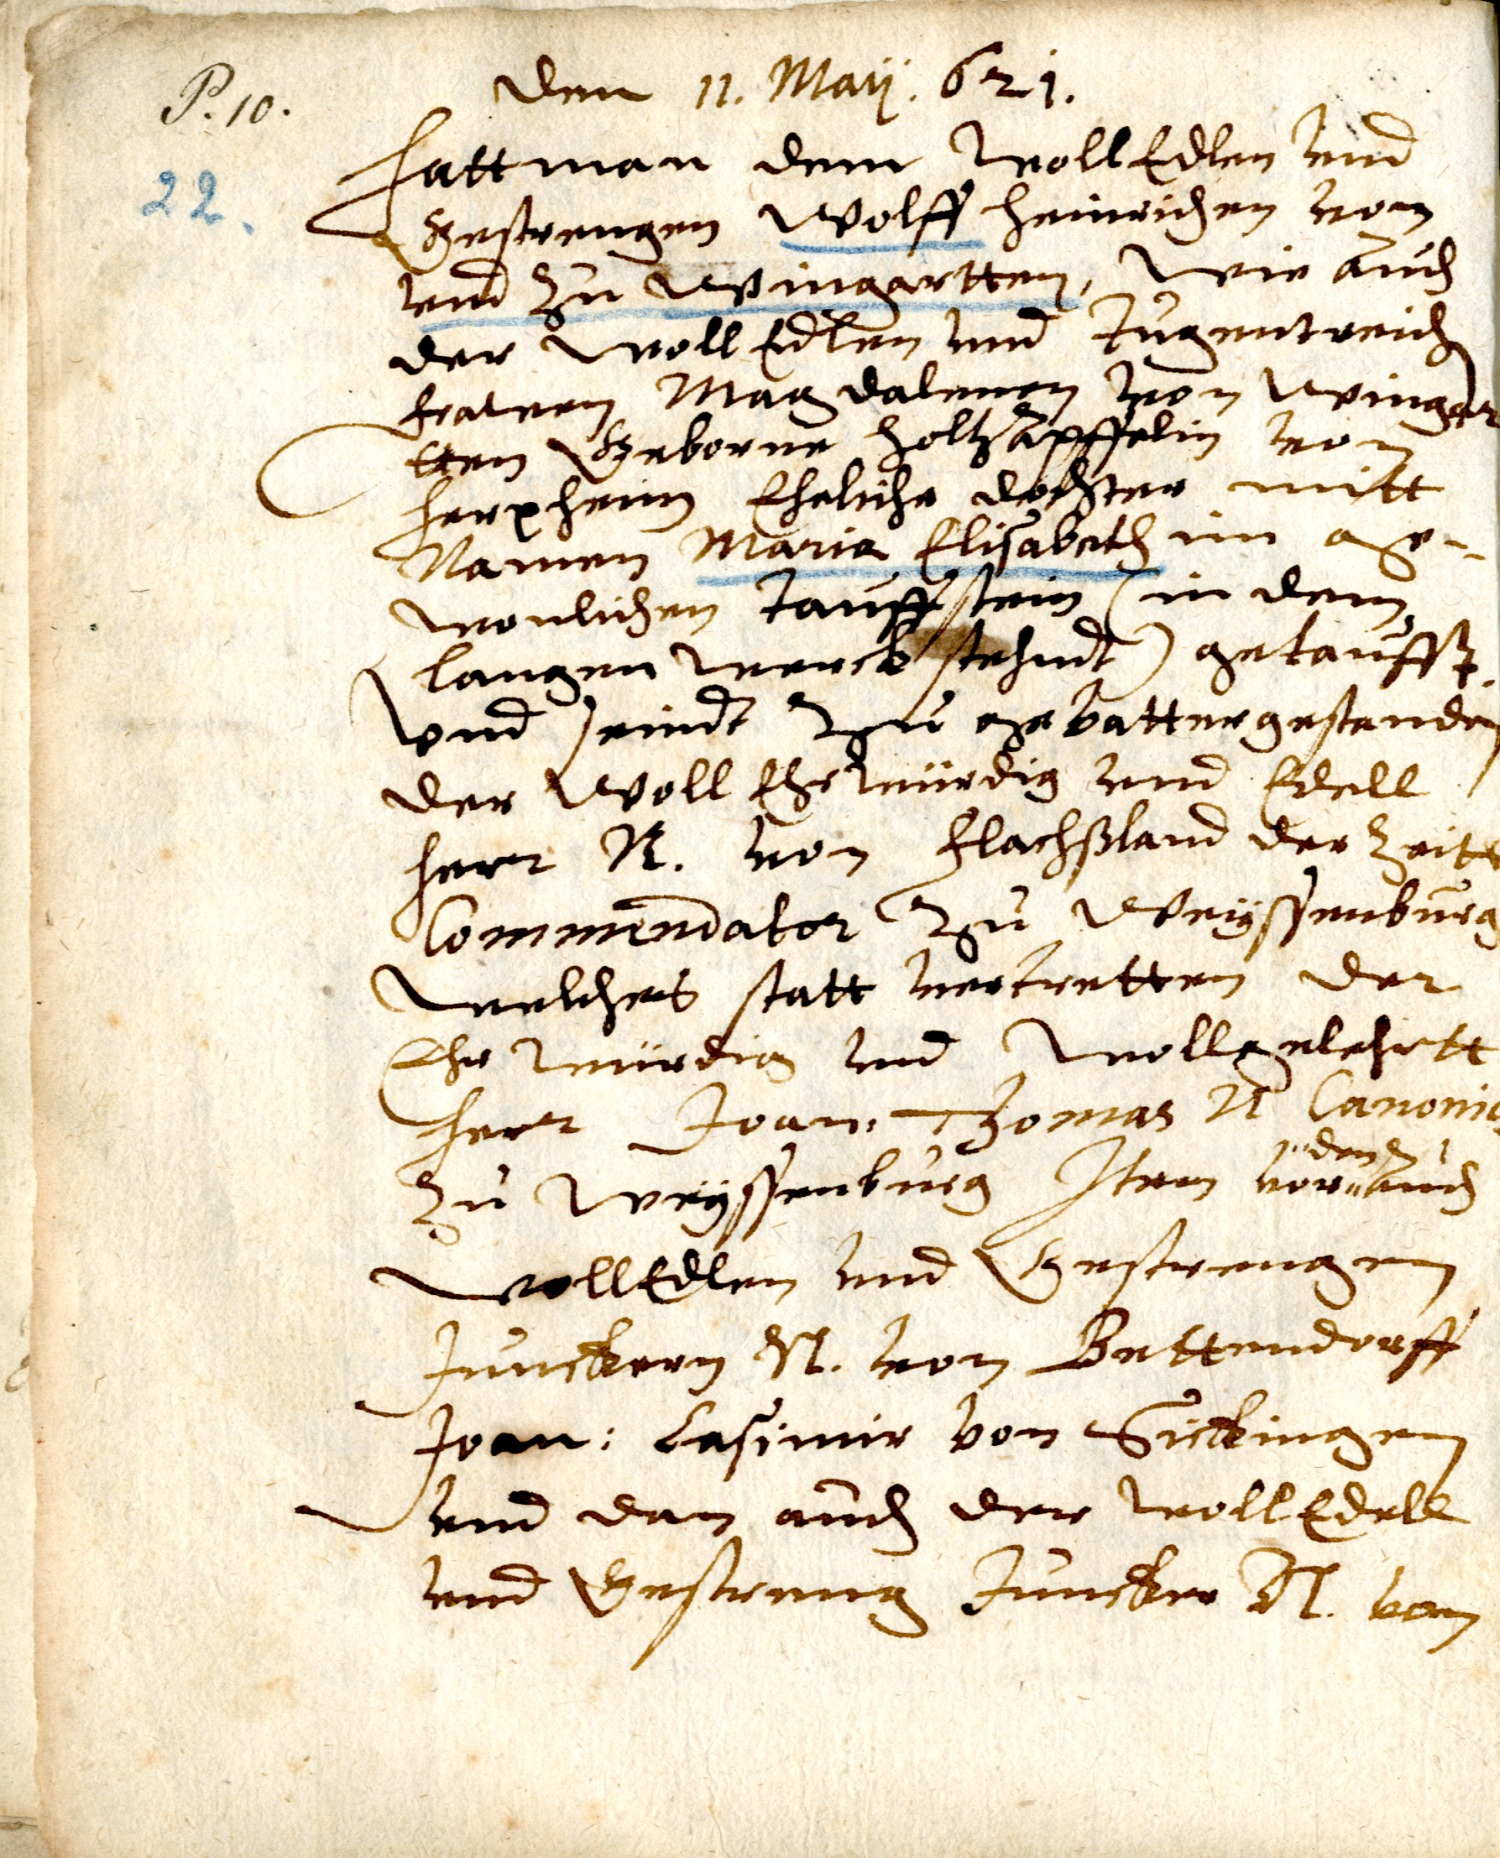 P. 10.
den 11. Maij. 621.
22.
hatt man dem WollEdlen vnd
Gestrengen Wolff Heinrichen von
vnd zu Wingartten, wie auch
der WollEdlen vnd Tugentreich
frawen Magdalenen von Wingar
tten Geborne Holtzäpffelin von
Herxheim Eheliche dochter mitt
Namen Maria Elisabeth im ge-
wonlichen Tauffstein (in dem
langen werck stehndt) getaufft.
vnd seindt zu gevatter gestanden
der WollEhrwürdig vnd Edell
Herr N. von Flachßland der Zeitt
Commendator zu Weyssenburg
welches statt vertretten der
Ehrwürdig vnd Wollgelehrtt
Herr Joan: Thomas N Canonic
zu Weyssenburg Item von auch
den
WollEdlen vnd Gestrengen
Junckern N. von Bettendorff
Joan: Casimir von Sickingen
vnd dan auch der WollEdell
vnd Gestreng Juncker N. von